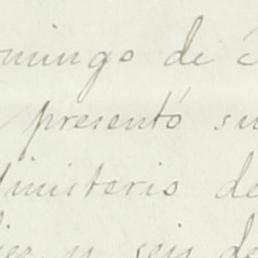 omingo de
presentó su
Ministerio de
diez y seis de